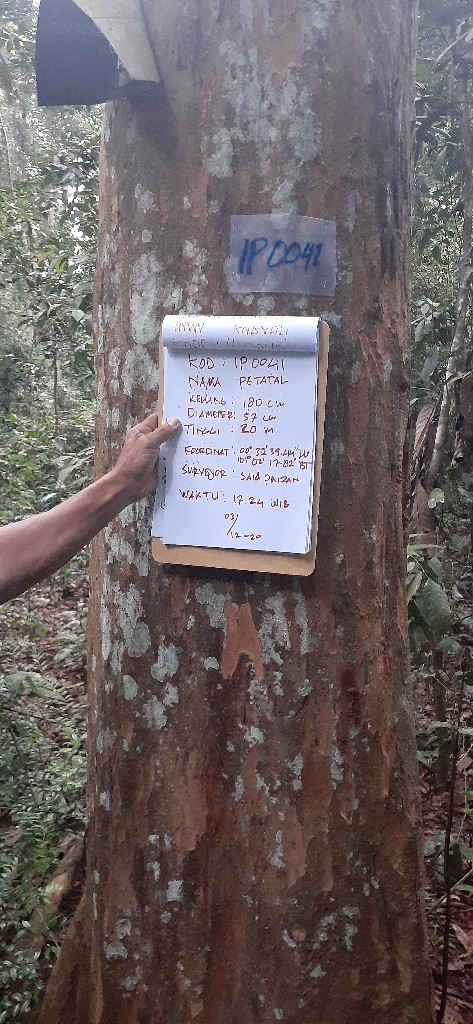 IP0041
KOD : IP0041
NAMA PETATAL
KELILING : 180 CM
DIAMETER : 57 CM
TINGGI : 20 M
KOORDINAT : 00° 32' 39.44" LU
101° 02' 17.82" BT
SURVEYOR : SAID
WAKTU : 17.24 WIB
03/
/12-20